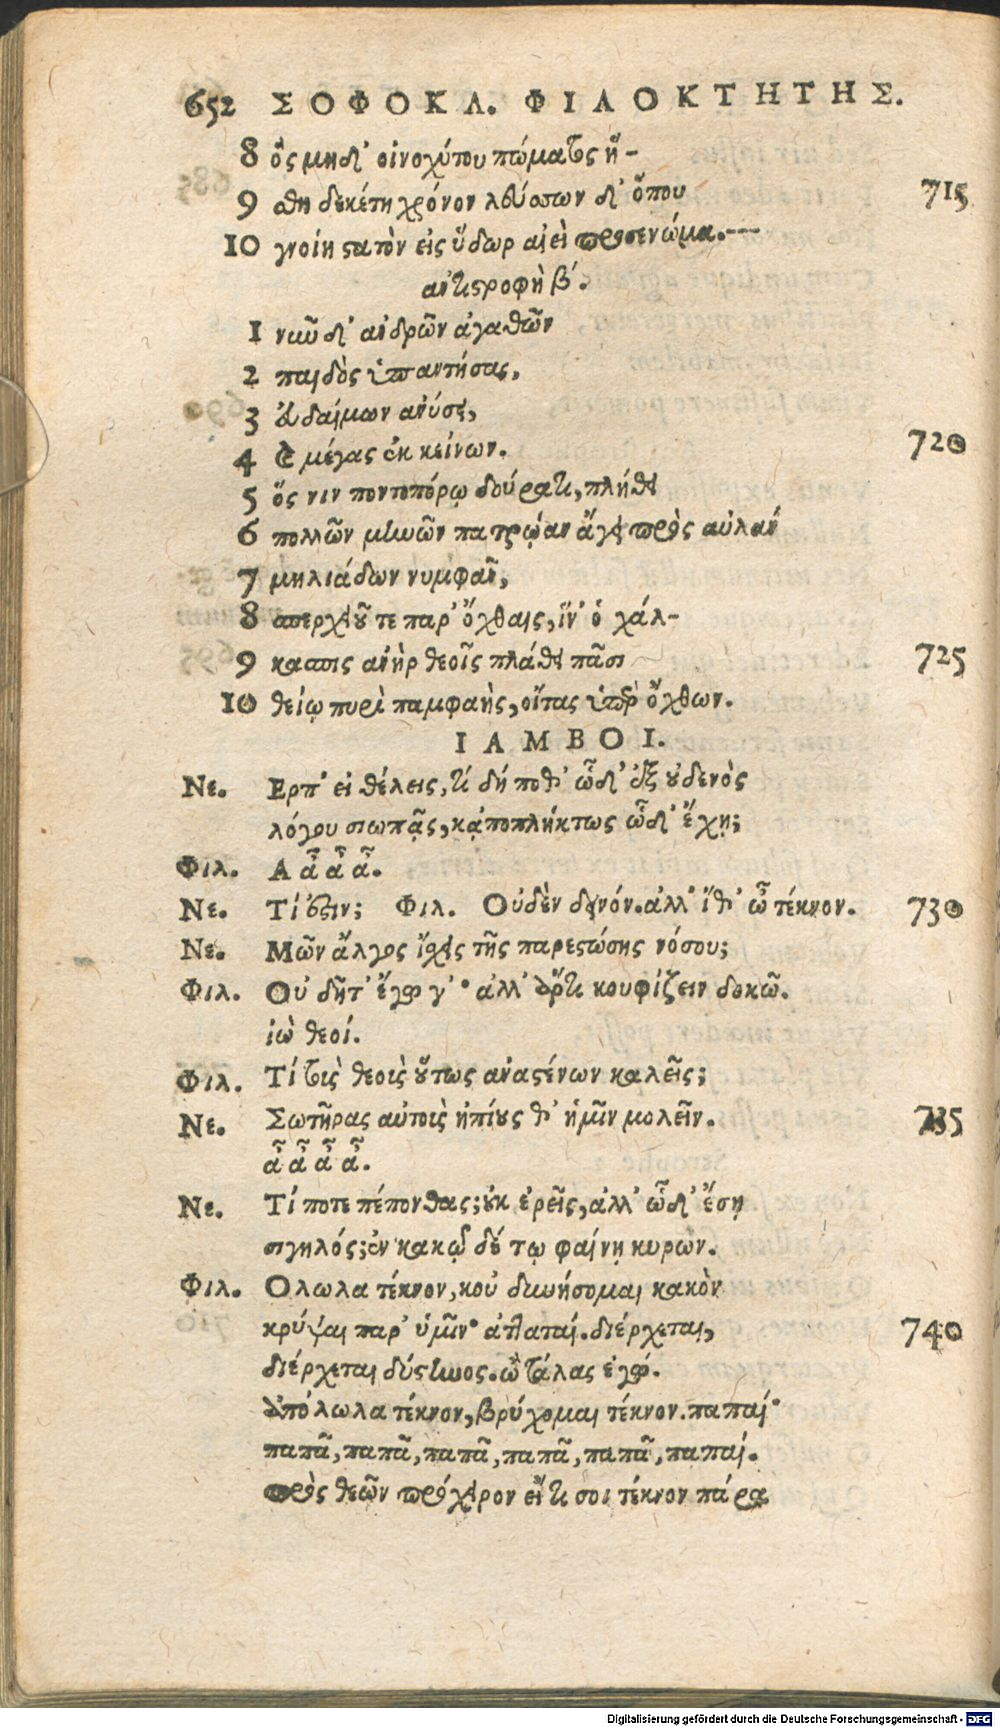 652 ΣΟΦΟΚΛ. ΦΙΛΟΚΤΗΤΗΣ.
8 ὃς μηδ' οἰνοχύτου πώματος ἥ-
9 σθη δεκέτη χρόνον λεύσσων δ' ὅπου 715
10 γνοίη στατὸν εἰς ὕδωρ αἰεὶ προσενώμα.---
ἀντιστροφὴ β'.
1 νῦν δ' ἀνδρῶν ἀγαθῶν
2 παιδὸς ὑπαντήσας,
3 εὐδαίμων ἀνύσει,
4 καὶ μέγας ἐκ κείνων. 720
5 ὅς νιν ποντοπόρῳ δούρατι, πλήθει
6 πολλῶν μηνῶν πατρῴαν ἄγει πρὸς αὐλὰν
7 μηλιάδων νυμφᾶν,
8 σπερχειοῦ τε παρ' ὄχθαις, ἵν' ὁ χάλ-
9 κασπις ἀνὴρ θεοῖς πλάθει πᾶσι 725
10 θείῳ πυρὶ παμφαὴς, οἴτας ὑπὲρ ὄχθων.
ΙΑΜΒΟΙ.
Νε. Ερπ' εἰ θέλεις, τί δή ποθ' ὧδ' ἐξ οὐδενὸς
λόγου σιωπᾷς, κἀποπλήκτως ὧδ' ἔχῃ;
Φιλ. Α ἆ ἆ ἆ.
Νε. Τί ἔστιν; Φιλ. Οὐδὲν δεινόν. ἀλλ' ἴθ' ὦ τέκνον. 730
Νε. Μῶν ἄλγος ἴσχεις τῆς παρεστώσης νόσου;
Φιλ. Οὐ δῆτ' ἔγωγ'· ἀλλ' ἄρτι κουφίζειν δοκῶ.
ἰὼ θεοί.
Φιλ. Τί τοὺς θεοὺς οὕτως ἀναστένων καλεῖς;
Νε. Σωτῆρας αὐτοὺς ἠπίους θ' ἡμῖν μολεῖν. 735
ἆ ἆ ἆ ἆ.
Νε. Τί ποτε πέπονθας; οὐκ ἐρεῖς, ἀλλ' ὧδ' ἔσῃ
σιγηλός; ἐν κακῷ δέ τῳ φαίνῃ κυρῶν.
Φιλ. Ολωλα τέκνον, κοὐ δυνήσομαι κακὸν
κρύψαι παρ' ὑμῖν· ἀτταταί. διέρχεται, 740
διέρχεται δύστηνος. ὢ τάλας ἐγώ.
Ἀπόλωλα τέκνον, βρύχομαι τέκνον. παπαί·
παπᾶ, παπᾶ, παπᾶ, παπᾶ, παπᾶ, παπαί.
πρὸς θεῶν πρόχειρον εἴ τι σοι τέκνον πάρα
Digitalisierung gefördert durch die Deutsche Forschungsgemeinschaft - DFG